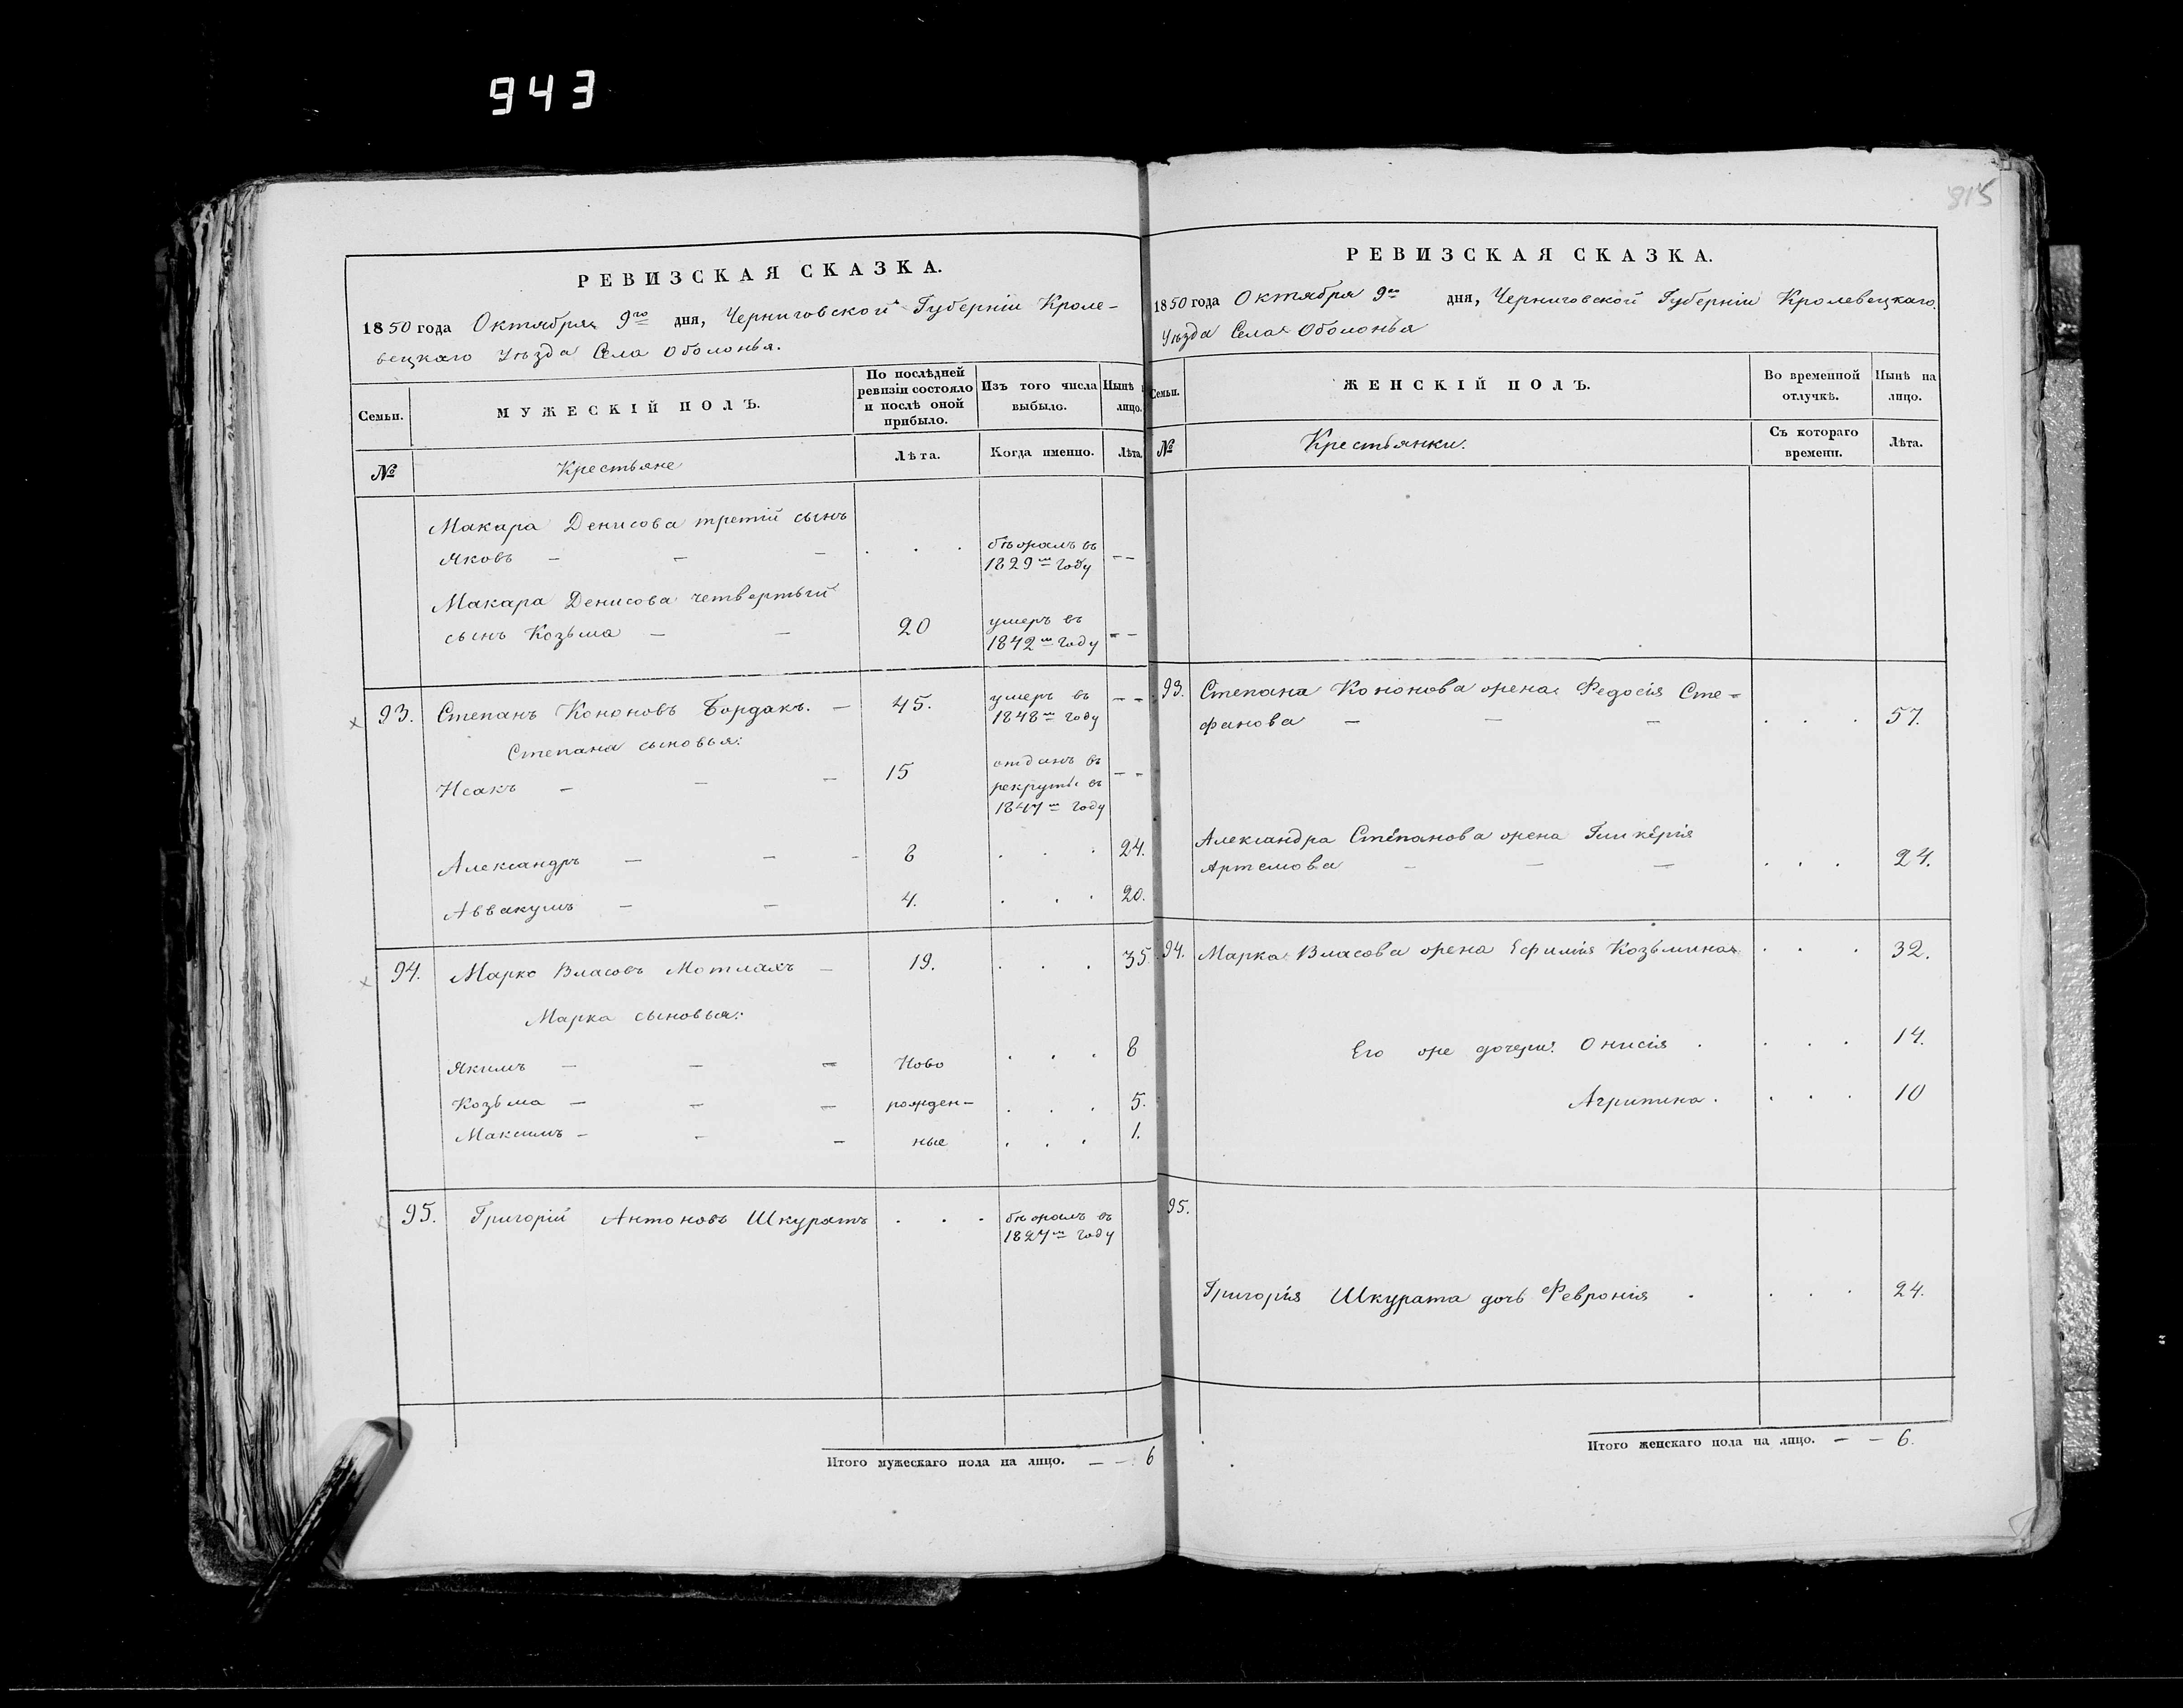 943
815
РЕВИЗСКАЯ СКАЗКА.
1850 года Октября 9го дня, Черниговской Губерніи Кроле-
вецкаго Уѣзда Села Оболонья.
Семьи.
МУЖЕСКІЙ ПОЛЪ.
По послѣдней
ревизіи состояло
и послѣ оной
прибыло.
Изъ того числа
выбыло.
Нынѣ
лицо.
№
Крестьяне
Лѣта.
Когда именно.
Лѣта.
Макара Денисова третій сынъ
Яковъ — — — . . . бѣжалъ въ
1829м году — —
Макара Денисова четвертый
сынъ Козьма — — 20 умеръ въ
1842м году — —
93. Степанъ Кононовъ Бордакъ. — 45. умеръ въ
1848м году — —
Степана сыновья:
Исакъ — — — 15 отданъ въ
рекруты въ
1847м году — —
Александръ — — — 8 . . . 24.
Аввакумъ — — 4. . . . 20.
94. Марко Власовъ Мотлахъ — 19. . . . 35.
Марка сыновья:
Якимъ — — — Ново . . . 8
Козьма — — — рожден- . . . 5.
Максимъ — — — ные . . . 1.
95. Григорій Антоновъ Шкуратъ . . . бѣжалъ въ
1827м году
Итого мужескаго пола на лицо. — — 6
РЕВИЗСКАЯ СКАЗКА.
1850 года Октября 9го дня, Черниговской Губерніи Кролевецкаго
Уѣзда Села Оболонья
Семьи.
ЖЕНСКІЙ ПОЛЪ.
Во временной
отлучкѣ.
Нынѣ на
лицо.
№
Крестьянки.
Съ котораго
времени.
Лѣта.
93. Степана Кононова жена Федосія Сте-
фанова — — — . . . 57.
Александра Степанова жена Гликерія
Артемова — — — . . . 24.
94. Марка Власова жена Ефимія Козьмина . . . 32.
Его же дочери: Онисія . . . . 14.
Агрипина . . . . 10
95.
Григорія Шкурата дочь Февронія . . . . 24.
Итого женскаго пола на лицо. — — 6.